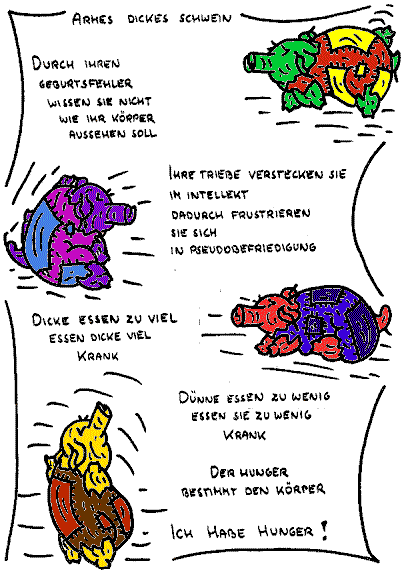 Armes dickes Schwein
Durch ihren
Geburtsfehler
wissen sie nicht
wie ihr Körper
aussehen soll
Ihre Triebe verstecken sie
im Intellekt
dadurch frustrieren
sie sich
in Pseudobefriedigung
Dicke essen zu viel
essen dicke viel
krank
Dünne essen zu wenig
essen sie zu wenig
krank
Der Hunger
bestimmt den Körper
Ich habe Hunger!